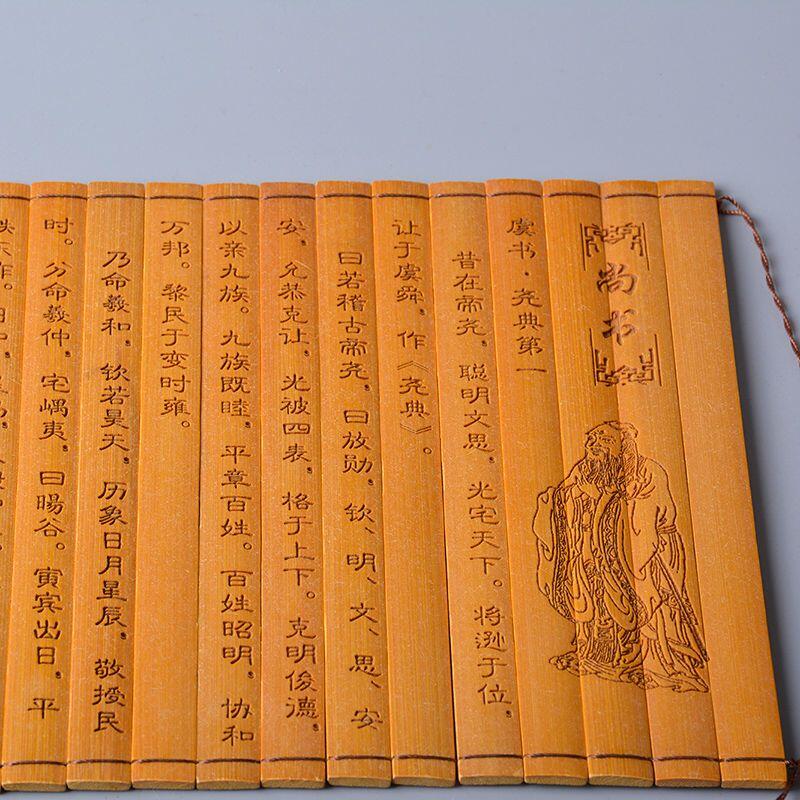 尚书
虞书·尧典第一
昔在帝尧，聪明文思，光宅天下。将逊于位，
让于虞舜，作《尧典》。
曰若稽古帝尧，曰放勋，钦、明、文、思、安
安，允恭克让，光被四表，格于上下。克明俊德，
以亲九族。九族既睦，平章百姓。百姓昭明，协和
万邦。黎民于变时雍。
乃命羲和，钦若昊天，历象日月星辰，敬授民
时。分命羲仲，宅嵎夷，曰旸谷。寅宾出日，平